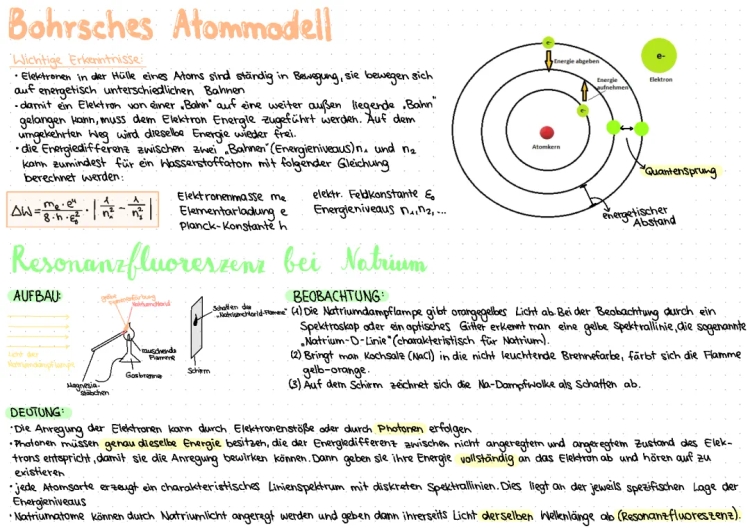 Bohrsches Atommodell
Wichtige Erkenntnisse:
• Elektronen in der Hülle eines Atoms sind ständig in Bewegung, sie bewegen sich
auf energetisch unterschiedlichen Bahnen
• damit ein Elektron von einer „Bahn" auf eine weiter außen liegende „Bahn"
gelangen kann, muss dem Elektron Energie zugeführt werden. Auf dem
umgekehrten Weg wird dieselbe Energie wieder frei.
• die Energiedifferenz zwischen zwei „Bahnen" (Energieniveaus) n₁ und n₂
kann zumindest für ein Wasserstoffatom mit folgender Gleichung
berechnet werden:
ΔW = mₑ · e⁴ / 8 · h · ε₀² · | 1/n₂² − 1/n₁² |
Elektronenmasse mₑ
Elementarladung e
Planck-Konstante h
elektr. Feldkonstante ε₀
Energieniveaus n₁, n₂, ...
e-
Energie abgeben
Energie
aufnehmen
e-
Atomkern
e-
Elektron
Quantensprung
energetischer
Abstand
Resonanzfluoreszenz bei Natrium
AUFBAU:
gelbe
Flammenfärbung
Natriumchlorid
Licht der
Natriumdampflampe
rauschende
Flamme
Gasbrenner
Magnesia-
stäbchen
Schatten der
„Natriumchlorid-Flamme"
Schirm
BEOBACHTUNG:
(1) Die Natriumdampflampe gibt orangegelbes Licht ab. Bei der Beobachtung durch ein
Spektroskop oder ein optisches Gitter erkennt man eine gelbe Spektrallinie, die sogenannte
„Natrium-D-Linie" (charakteristisch für Natrium).
(2) Bringt man Kochsalz (NaCl) in die nicht leuchtende Brennefarbe, färbt sich die Flamme
gelb-orange.
(3) Auf dem Schirm zeichnet sich die Na-Dampfwolke als Schatten ab.
DEUTUNG:
• Die Anregung der Elektronen kann durch Elektronenstöße oder durch Photonen erfolgen
• Photonen müssen genau dieselbe Energie besitzen, die der Energiedifferenz zwischen nicht angeregtem und angeregtem Zustand des Elek-
trons entspricht, damit sie die Anregung bewirken können. Dann geben sie ihre Energie vollständig an das Elektron ab und hören auf zu
existieren
• jede Atomsorte erzeugt ein charakteristisches Linienspektrum mit diskreten Spektrallinien. Dies liegt an der jeweils spezifischen Lage der
Energieniveaus
• Natriumatome können durch Natriumlicht angeregt werden und geben dann ihrerseits Licht derselben Wellenlänge ab (Resonanzfluoreszenz).